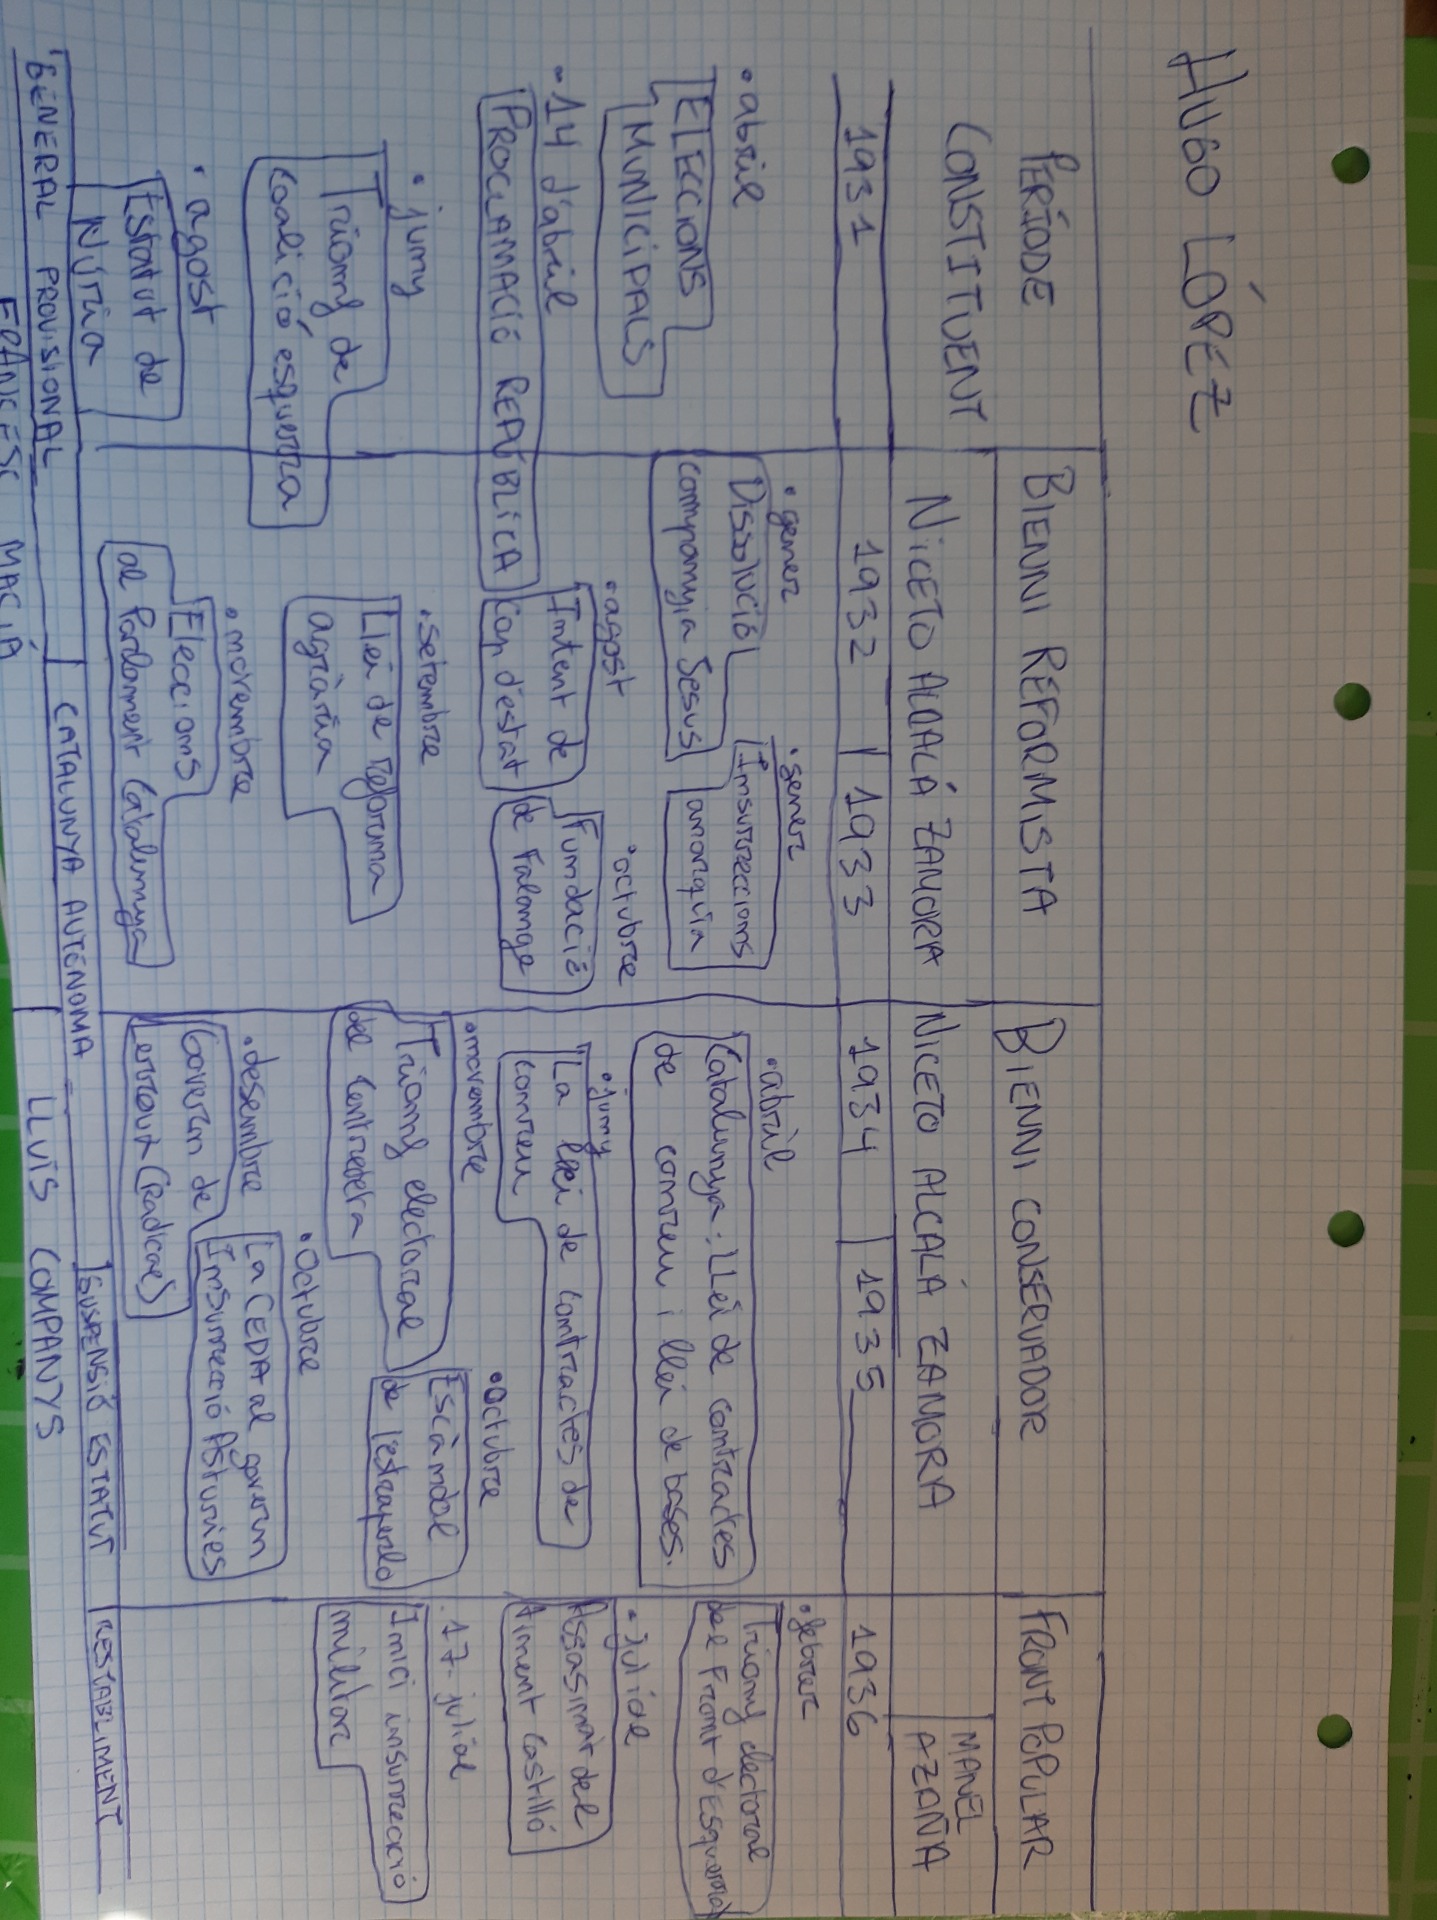 HUGO LÓPEZ
PERÍODE
CONSTITUENT
BIENNI REFORMISTA
NICETO ALCALÁ ZAMORA
BIENNI CONSERVADOR
NICETO ALCALÁ ZAMORA
FRONT POPULAR
MANEL
AZAÑA
1931
1932
1933
1934
1935
1936
• abril
ELECCIONS
MUNICIPALS
• 14 d'abril
PROCLAMACIÓ REPÚBLICA
• juny
Triomf de
coalició esquerra
• agost
Estatut de
Núria
• gener
Dissolució
companyia Jesus
• agost
Intent de
Cop d'estat
• setembre
Llei de reforma
agrària
• novembre
Eleccions
al Parlament Catalunya
• gener
Insurreccions
anarquia
• octubre
Fundació
de Falange
• abril
Catalunya: Llei de contractes
de conreu i llei de bases.
• juny
La llei de contractes de
conreu
• novembre
Triomf electoral
del Centredreta
• desembre
Govern de
Lerroux (Radical)
• Octubre
La CEDA al govern
Insurrecció Astúries
• Octubre
Escàndol
de l'estraperlo
• febrer
Triomf electoral
del Front d'Esquerra
• juliol
Assasinat del
Tinent Castilló
• 17 juliol
Inici insurrecció
militar
GENERAL PROVISIONAL
CATALUNYA AUTÈNOMA
SUSPENSIÓ ESTATUT
RESTABLIMENT
FRANCESC MACIÀ
LLUÍS COMPANYS